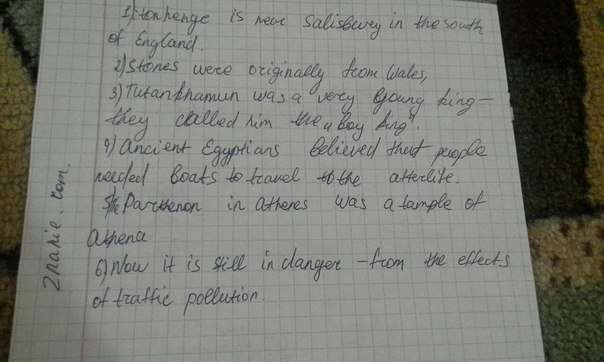 1) Stonhenge is near Salisbury in the south
of England.
2) Stones were originally from Wales,
3) Tutankhamun was a very young king —
they called him the „boy king".
4) Ancient Egyptians believed that people
needed boats to travel to the afterlife.
5) The Parthenon in Athenes was a tample of
Athena
6) Now it is still in danger – from the effects
of traffic pollution.
znanie.com